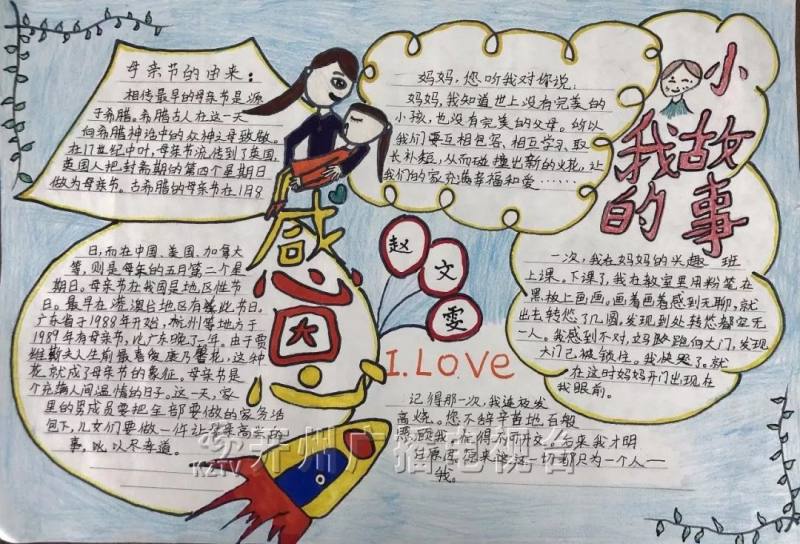 母亲节的由来：
相传最早的母亲节是源
于希腊。希腊古人在这一天
向希腊神话中的众神之母致敬。
在17世纪中叶，母亲节流传到了英国，
英国人把封斋期的第四个星期日
做为母亲节。古希腊的母亲节在1月8
日，而在中国、美国、加拿大
等，则是每年的五月第二个星
期日。母亲节在我国是地区性节
日。最早在港澳台地区有此节日。
广东省于1988年开始，杭州等地方于
1989年有母亲节，比广东晚了一年。由于
夫人生前最喜爱康乃馨花，这种
花就成了母亲节的象征。母亲节是
个充满人间温情的日子。这一天，家
里的男成员要把全部要做的家务活
包下，儿女们要做一件让母亲高兴的
事，以尽孝道。
感恩
妈妈，您听我对你说：
妈妈，我知道世上没有完美的
小孩，也没有完美的父母。所以
我们要互相包容、相互学习、取
长补短，从而碰撞出新的火花，让
我们的家充满幸福和爱……
赵文雯
I.LOVE
我的小故事
一次，我在妈妈的兴趣班
上课。下课了，我在教室里用粉笔在
黑板上画画。画着画着感到无聊，就
出去转悠了几圈，发现到处转悠都空无
一人。我感到不对，妈跑向大门，发现
大门已被锁住。我快哭了。就
在这时妈妈开门出现在
我眼前。
记得那一次，我连夜发
高烧。您不辞辛苦地百般
照顾我，忙得不可开交。后来我才明
白原来您这一切都只为一个人——
我。
开州广播电视台
KZTV